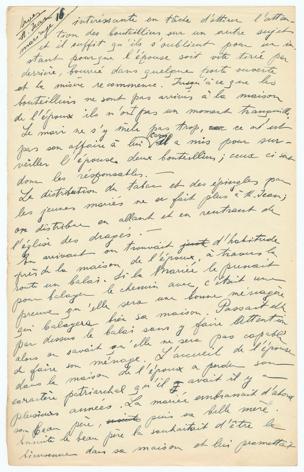 avec
St Jean
mariage 16
intéressante en tâche d'attirer l'atten
tion des boutteillers sur un autre sujet
et il suffit qu'ils s'oublient pour un in
stant pourque l'épouse soit vite tirée par
derrière, fourrée dans quelque porte ouverte
et la misère recommence. Jusqu'à ce que les
boutteillers ne sont pas arrivés à la maison
de l'époux ils n'ont pas un moment tranquille.
Le mari ne s'y mêle pas trop, ce n'est
pas son affaire à lui, on a mis pour sur-
veiller l'épouse deux boutteillers; ceux ci sont
donc les responsables.
La distribution de tabac et des épingles par
les jeunes mariés ne se fait plus à St Jean;
on distribue en allant et en rentrant de
l'église des dragées.
En arrivant on trouvait d'habitude
près de la maison de l'époux, à travers la
route un balai. Si la mariée le prenait
pour balayer le chemin avec, c'était une
preuve qu'elle sera une bonne ménagère
qui balayera bien sa maison. Passant
par dessus le balai sans y faire attention
alors on savait qu'elle ne sera pas capable
de faire son ménage. L'accueil de l'épouse
dans la maison de l'époux a perdu son
caractère patriarchal qu'il avait il y a
plusieurs années. La mariée embrassait d'abord
son beau père, puis sa belle mère.
Ensuite le beau père la souhaitait d'être la
bienvenue dans sa maison et lui promettait